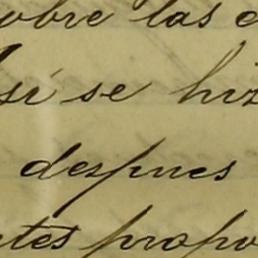 sobre las
Así se hiz
despues
ntes propo